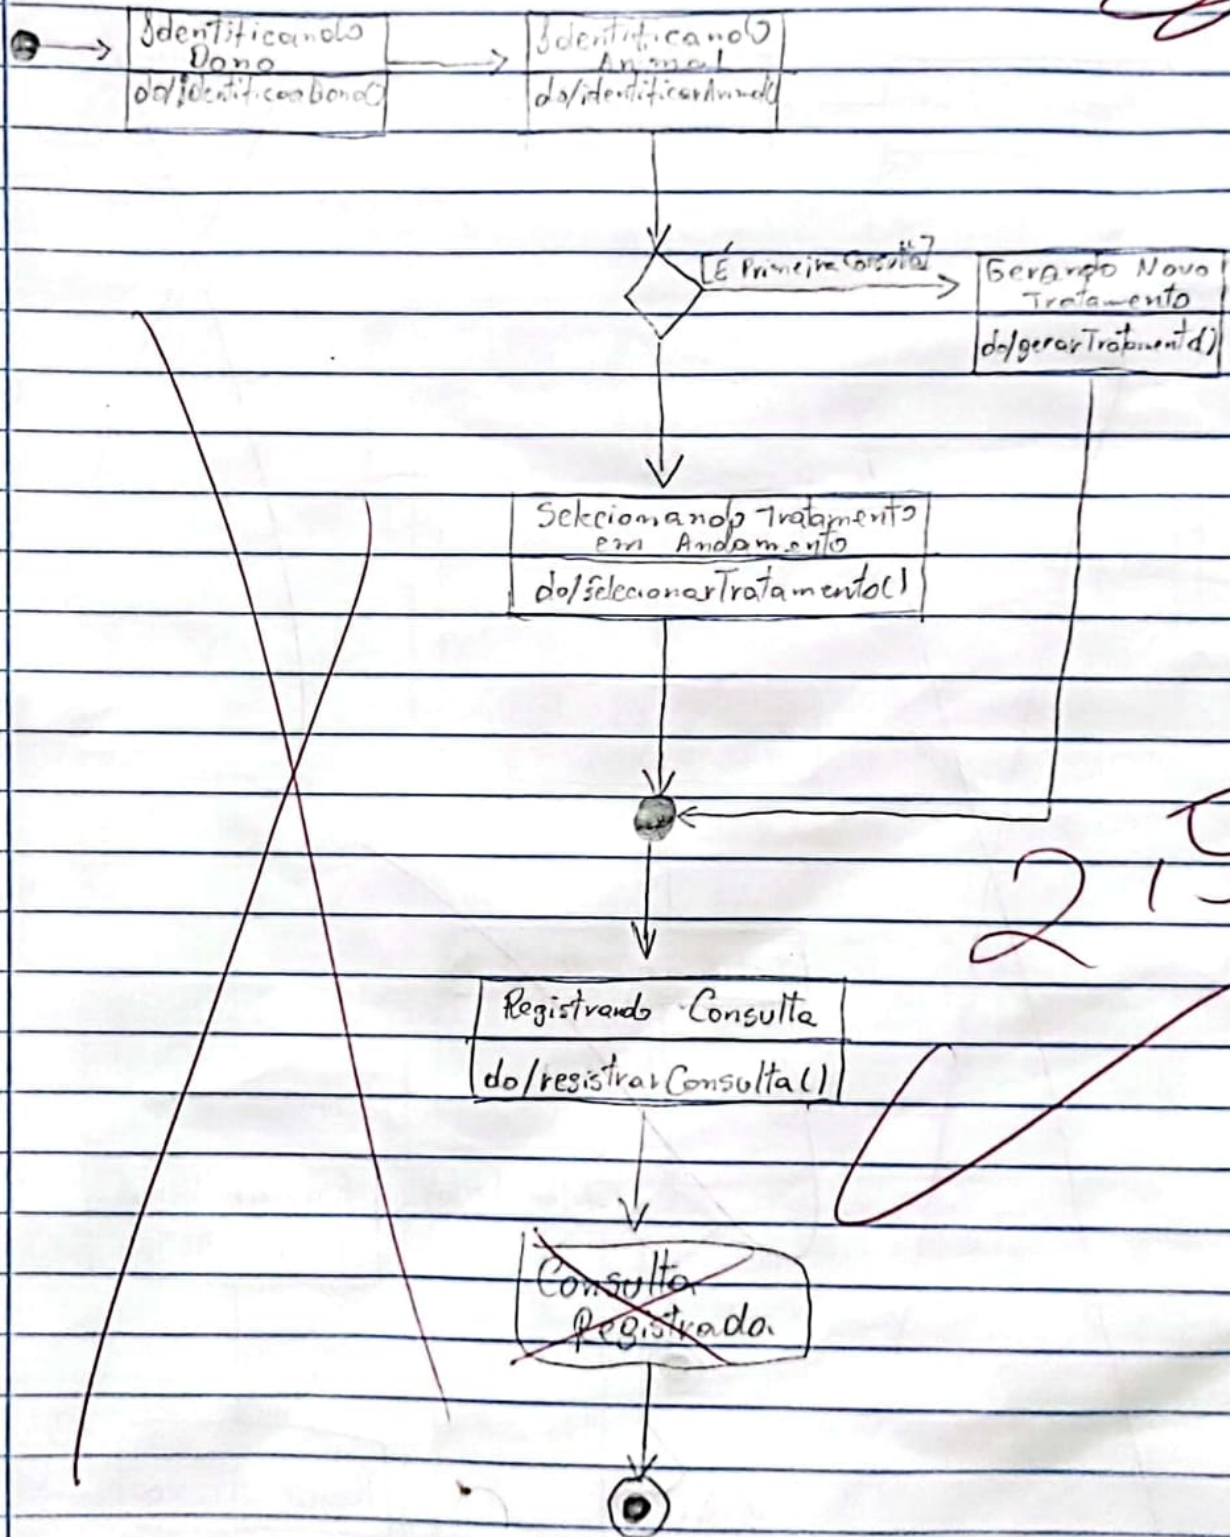 Identificando
Dono
do/identificaDono()
Identificando
Animal
do/identificarAnimal()
[É Primeira Consulta]
Gerando Novo
Tratamento
do/gerarTratamento()
Selecionando Tratamento
em Andamento
do/selecionarTratamento()
Registrando Consulta
do/registrarConsulta()
Consulta
Registrada